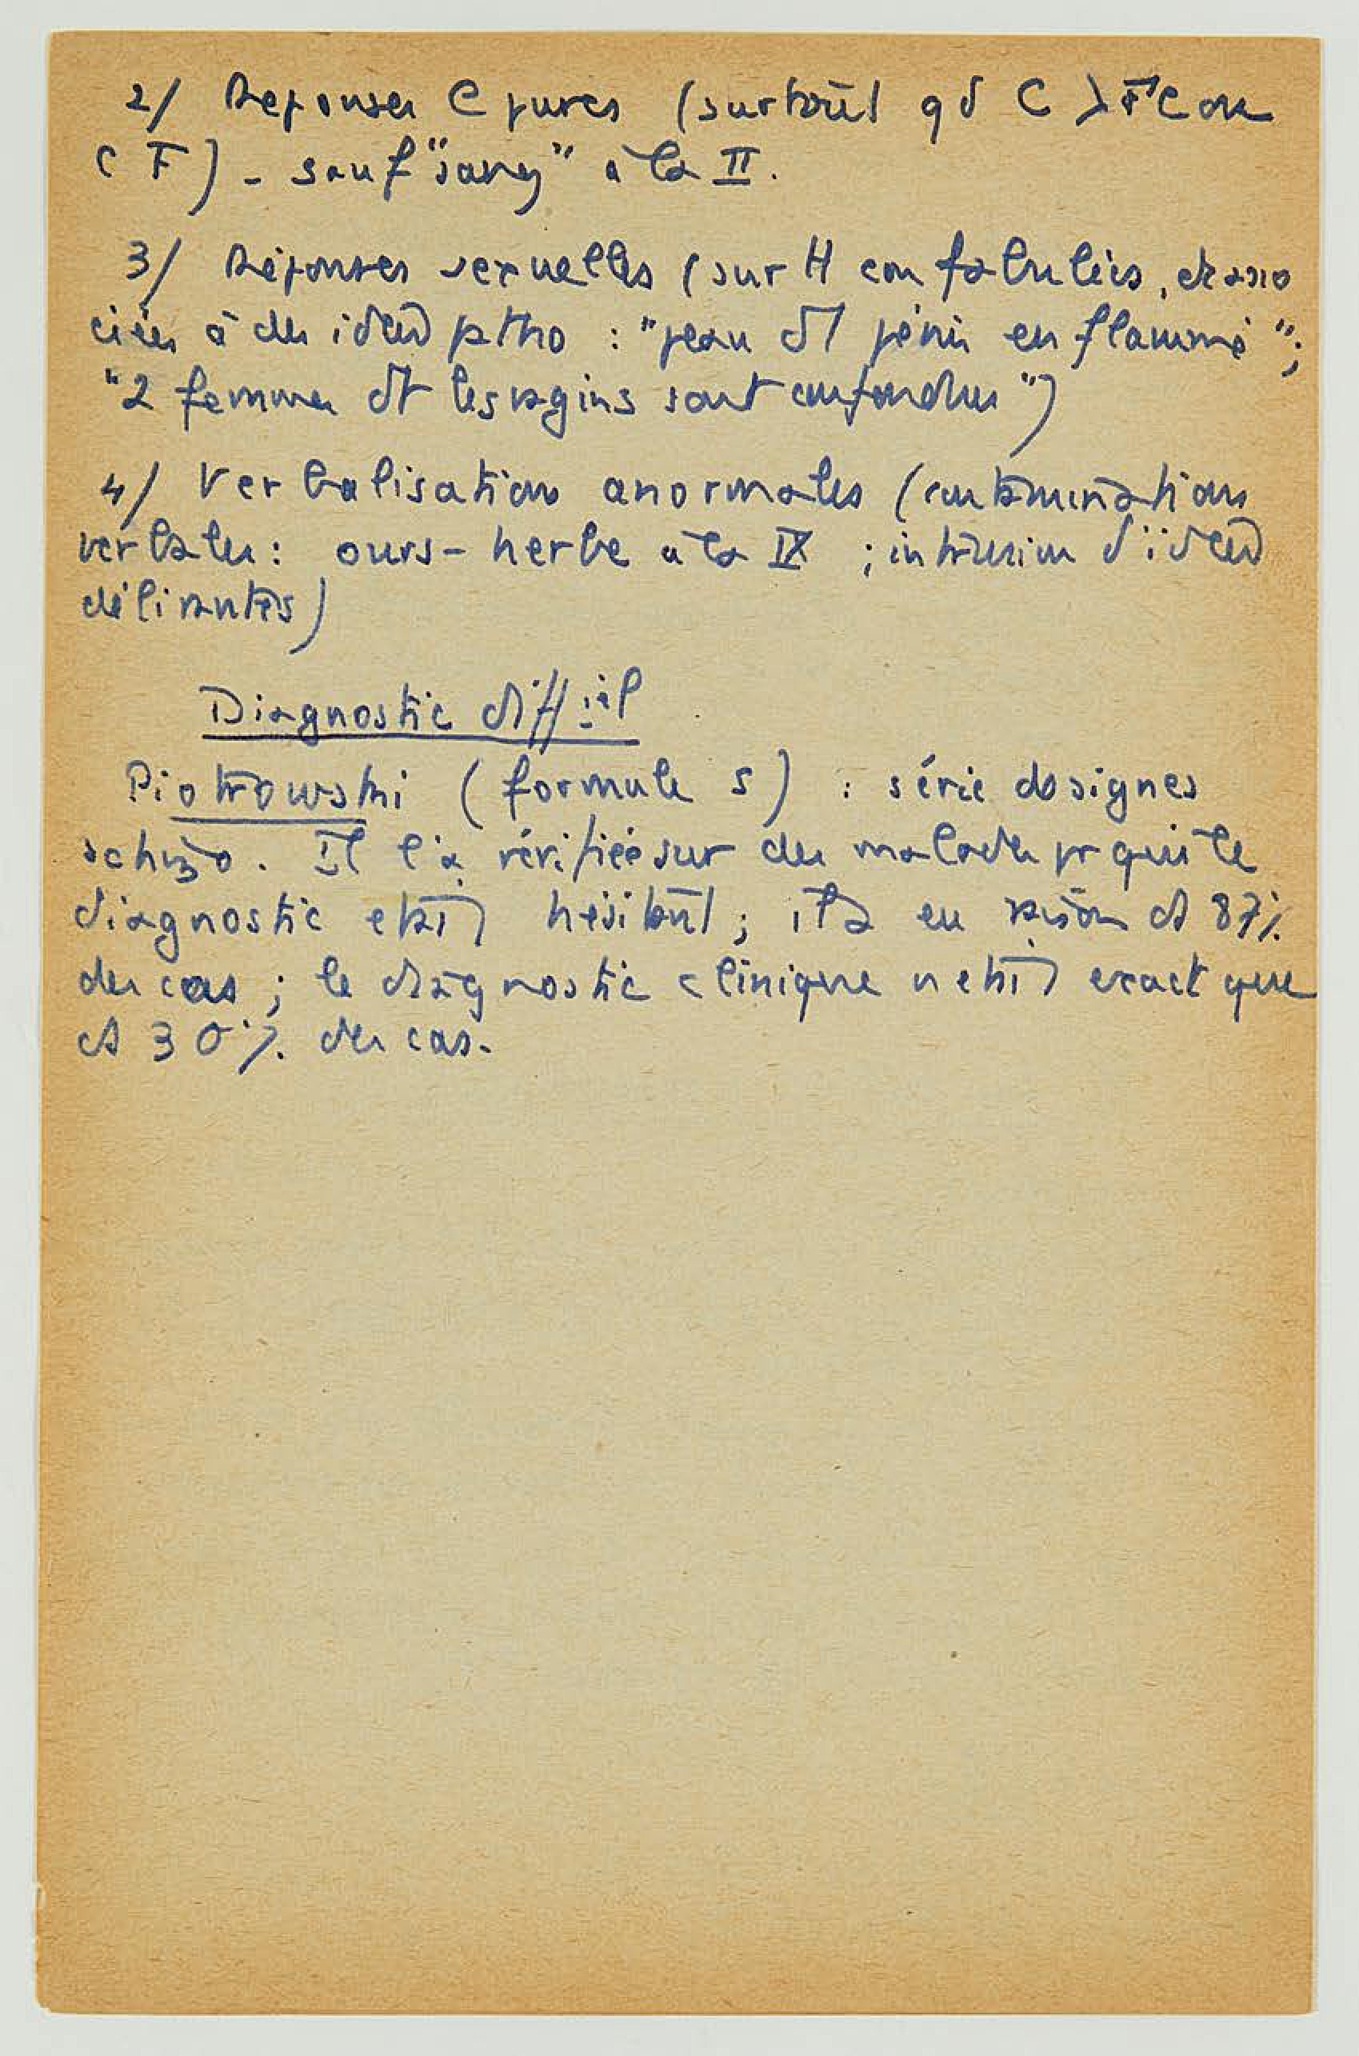 2/ Réponses C pures (surtout qd C > FC ou
CF) - sauf "sang" à la II.
3/ Réponses sexuelles (sur H confabulées, et asso
ciées à des idées patho : "peau dt pénis enflammé" ;
"2 femmes dt les vagins sont confondus")
4/ Verbalisations anormales (contaminations
verbales : ours-herbe à la IX ; intrusion d'idées
délirantes)
Diagnostic difftiel
Piotrowski (formule S) : série de signes
schizo. Il l'a vérifiée sur des malades pr qui le
diagnostic était hésitant ; il a eu raison ds 87%
des cas ; le diagnostic clinique n'était exact que
ds 30% des cas.